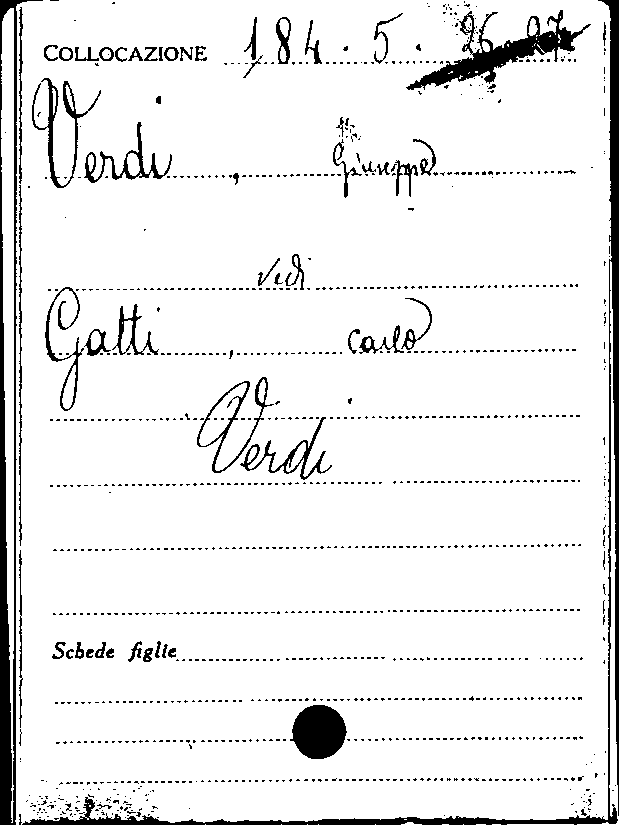 COLLOCAZIONE 184.5.26 27
Verdi, Giuseppe
vedi
Gatti, Carlo
Verdi
Schede figlie